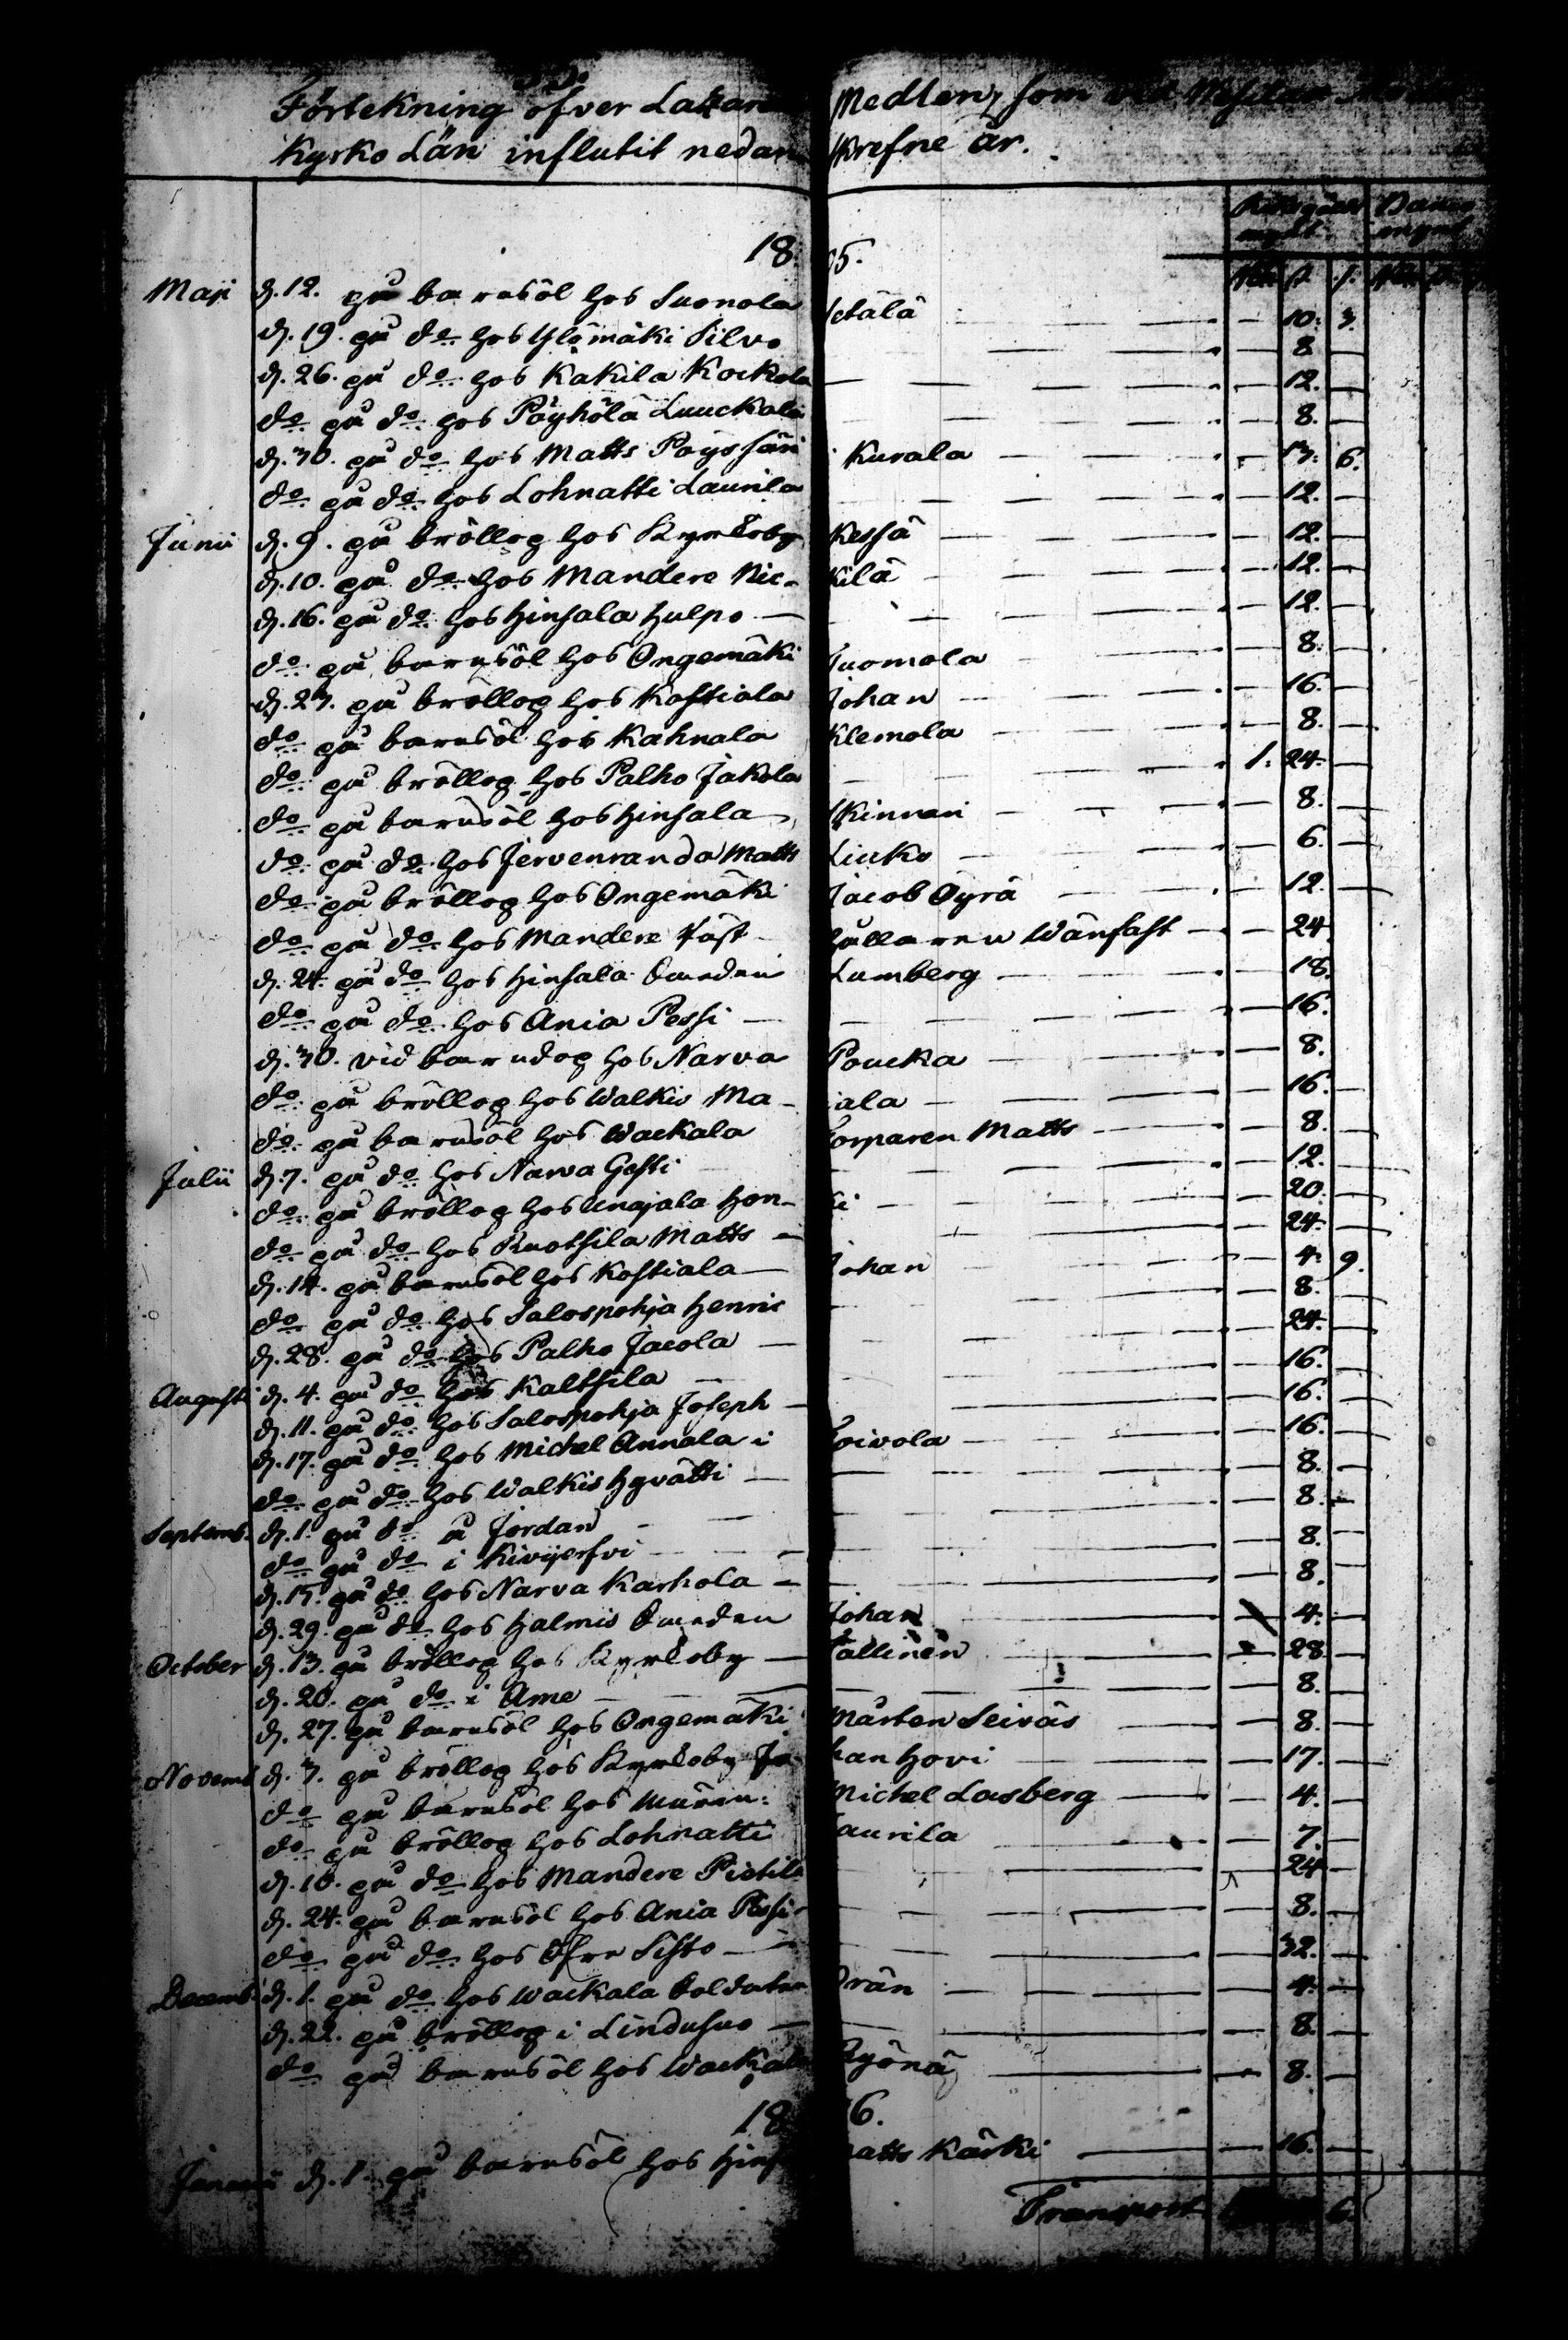 Förtekning öfver Lazar Medlen, som
Kyrko Län influtit nedan skrefne år.
Riksgälds mynt Banco mynt
1805.
Maji d. 12. på barnsöl hos Suonola Ietälä — 10. 3.
d. 19. på do hos Ylömäki Silvo — 8. —
d. 26. på do hos Kakila Kockola — 12. —
do på do hos Pöyhölä Luuckala — 8. —
d. 30. på do hos Matts Pöyssäri i Kurala — 13. 6.
do på do hos Lohnatti Laurila — 12. —
Junii d. 9. på bröllop hos Kyrkoby Kessä — 12. —
d. 10. på do hos Mandere Nickilä — 12. —
d. 16. på do hos Hinsala Hulpo — 12. —
do på barnsöl hos Ongemäki Tuomola — 8. —
d. 23. på bröllop hos Kostiala Johan — 16. —
do på barnsöl hos Kahnala Klemola — 8. —
do på bröllop hos Palho Jakola 1. 24. —
do på barnsöl hos Hinsala Skinnari — 8. —
do på do hos Jervenranda Matts Liuko — 6. —
do på bröllop hos Ongemäki Jacob Öyrä — 12. —
do på do hos Mandere Gästgifvaren Wänfast — 24. —
d. 24. på do hos Hinsala Smeden Lumberg — 18. —
do på do hos Ania Pessi — 16. —
d. 30. vid barndop hos Narva Poucka — 8. —
do på bröllop hos Walkis Matiala — 16. —
do på barnsöl hos Wackala Torparen Matts — 8. —
Julii d. 7. på do hos Narva Gesti — 12. —
do på bröllop hos Unajala Honki — 20. —
do på do hos Ruotsila Matts — 24. —
d. 14. på barnsöl hos Kostiala Johan — 4. 9.
do på do hos Salospohja Henric — 8. —
d. 28. på do hos Palho Jacola — 24. —
Augusti d. 4. på do hos Kaltsila — 16. —
d. 11. på do hos Salospohja Joseph — 16. —
d. 17. på do hos Michel Annala i Toivola — 16. —
do på do hos Walkis Hyvätti — 8. —
Septemb. d. 1. på do å Jordan — 8. —
do på do i Kivijerfvi — 8. —
d. 15. på do hos Narva Karhola — 8. —
d. 29. på do hos Halmis Smeden Johan — 4. —
October d. 13. på bröllop hos Kyrkoby Tallinen — 28. —
d. 20. på do i Ame — 8. —
d. 27. på barnsöl hos Ongemäki Mårten Seiväs — 8. —
Novemb. d. 3. på bröllop hos Kyrkoby Johan Hovi — 17. —
do på barnsöl hos Muraren Michel Lasberg — 4. —
do på bröllop hos Lohnatti Laurila — 7. —
d. 10. på do hos Mandere Pietilä — 24. —
d. 24. på barnsöl hos Ania Pessi — 8. —
do på do hos Öfre Sisto — 32. —
Decemb. d. 1. på do hos Wackala Soldaten Orän — 4. —
d. 22. på bröllop i Lindusuo — 8. —
do på barnsöl hos Wackala — 8. —
1806.
Januarii d. 1. på barnsöl hos Hinsala Matts Kärki — 16. —
Transport 6.